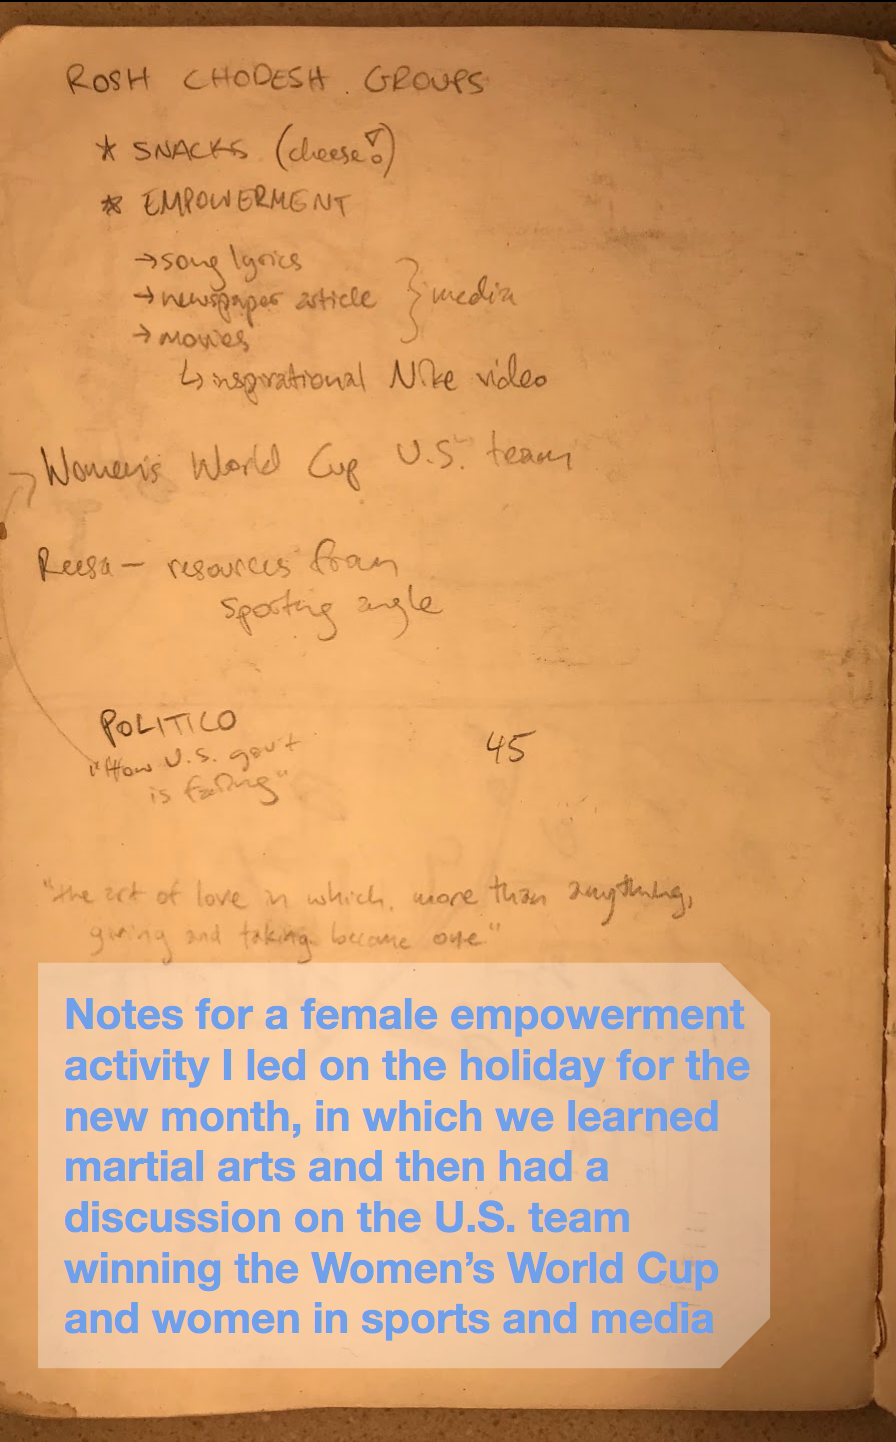 ROSH CHODESH GROUPS
* SNACKS (cheese!)
* EMPOWERMENT
→ song lyrics
→ newspaper article } media
→ movies
↳ inspirational Nike video
→ Women's World Cup U.S. team
Reesa — resources from
sporting angle
POLITICO
"How U.S. gov't
is failing"
45
"the art of love in which, more than anything,
giving and taking become one."
Notes for a female empowerment
activity I led on the holiday for the
new month, in which we learned
martial arts and then had a
discussion on the U.S. team
winning the Women’s World Cup
and women in sports and media